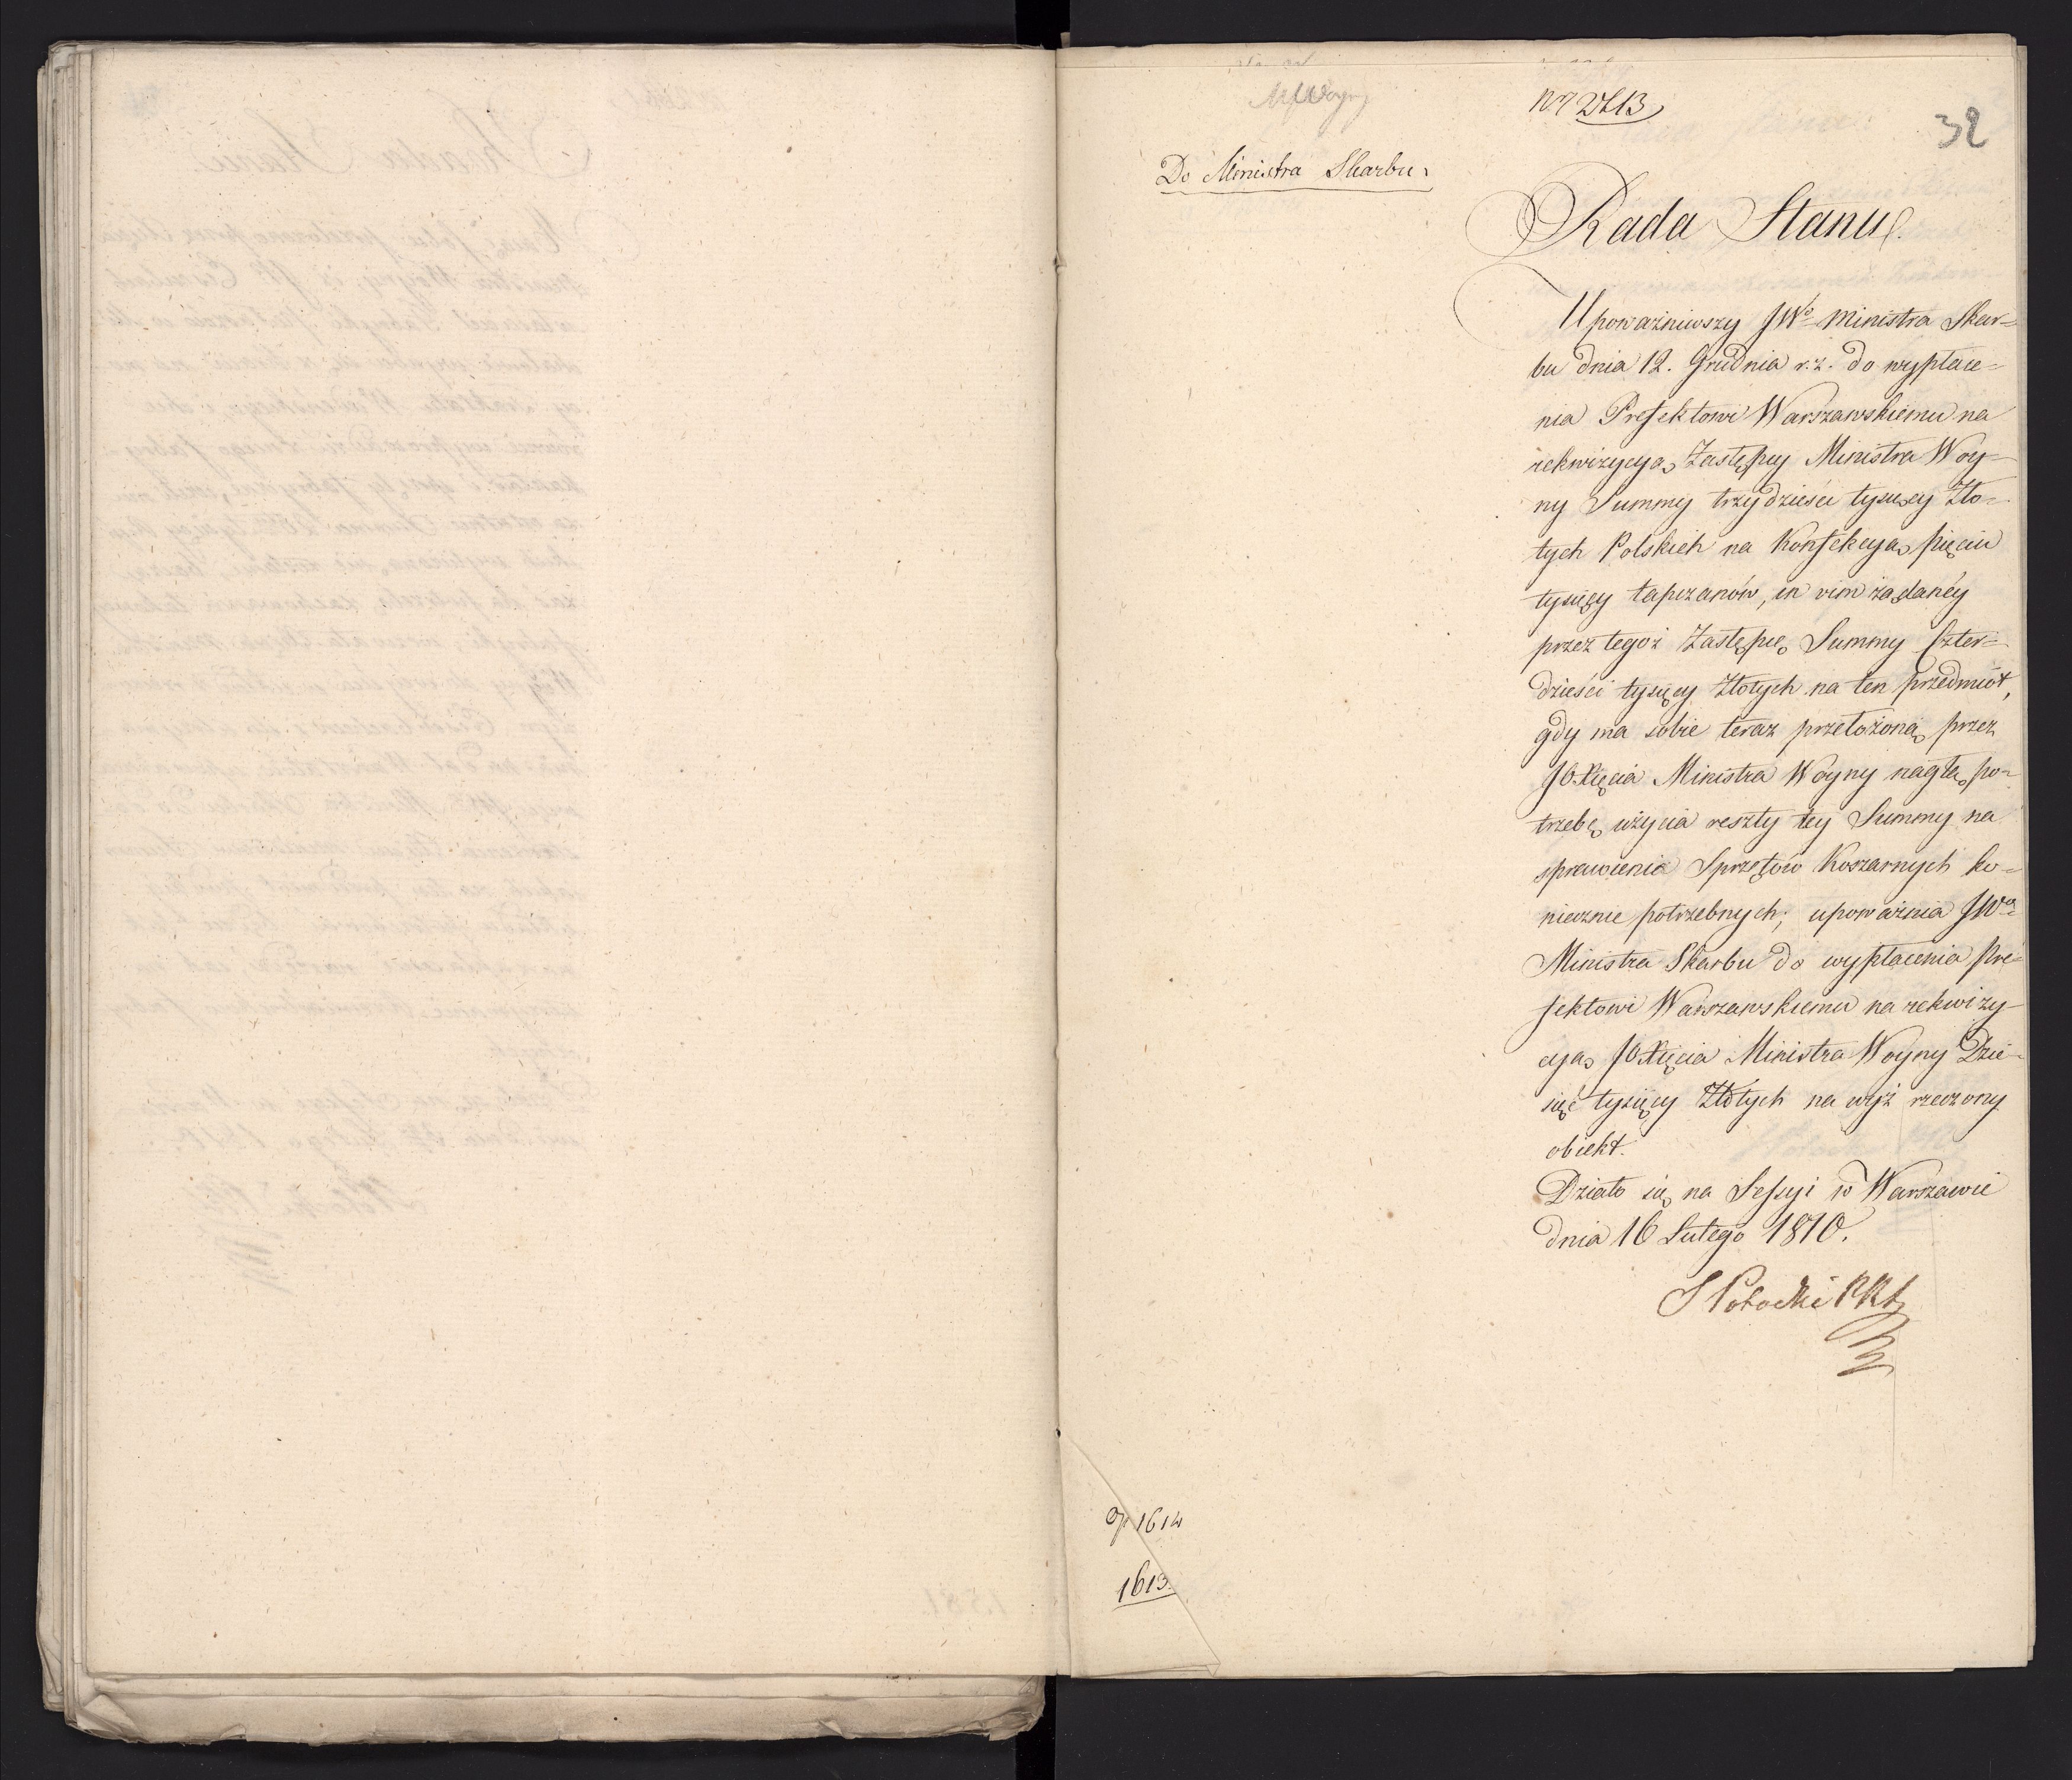 32
Do Ministra Skarbu.
Rada Stanu.
Upoważniwszy JWo Ministra Skar=
bu dnia 12. Grudnia r. z. do wypłace=
nia Prefektowi Warszawskiemu na
rekwizycyą Zastępcy Ministra Woy=
ny Summy trzydzieści tysięcy Zło=
tych Polskich na Konfekcyą pięciu
tysięcy tapczanów, in vim żądanéy
przez tegoż Zastępcę Summy Czter=
dzieści tysięcy Złotych na ten przedmiót,
gdy ma sobie teraz przełożoną przez
JO Xięcia Ministra Woyny nagłą po=
trzebę użycia reszty tey Summy na
sprawienie Sprzętów Koszarnych ko=
niecznie potrzebnych; upoważnia JWo
Ministra Skarbu do wypłacenia Pre=
fektowi Warszawskiemu na rekwizy=
cyą JO Xięcia Ministra Woyny Dzie=
sięć tysięcy Złotych na wyż rzeczony
obiekt.
Działo się na Sessyi w Warszawie
dnia 16 Lutego 1810.
S Potocki
1614
1613.